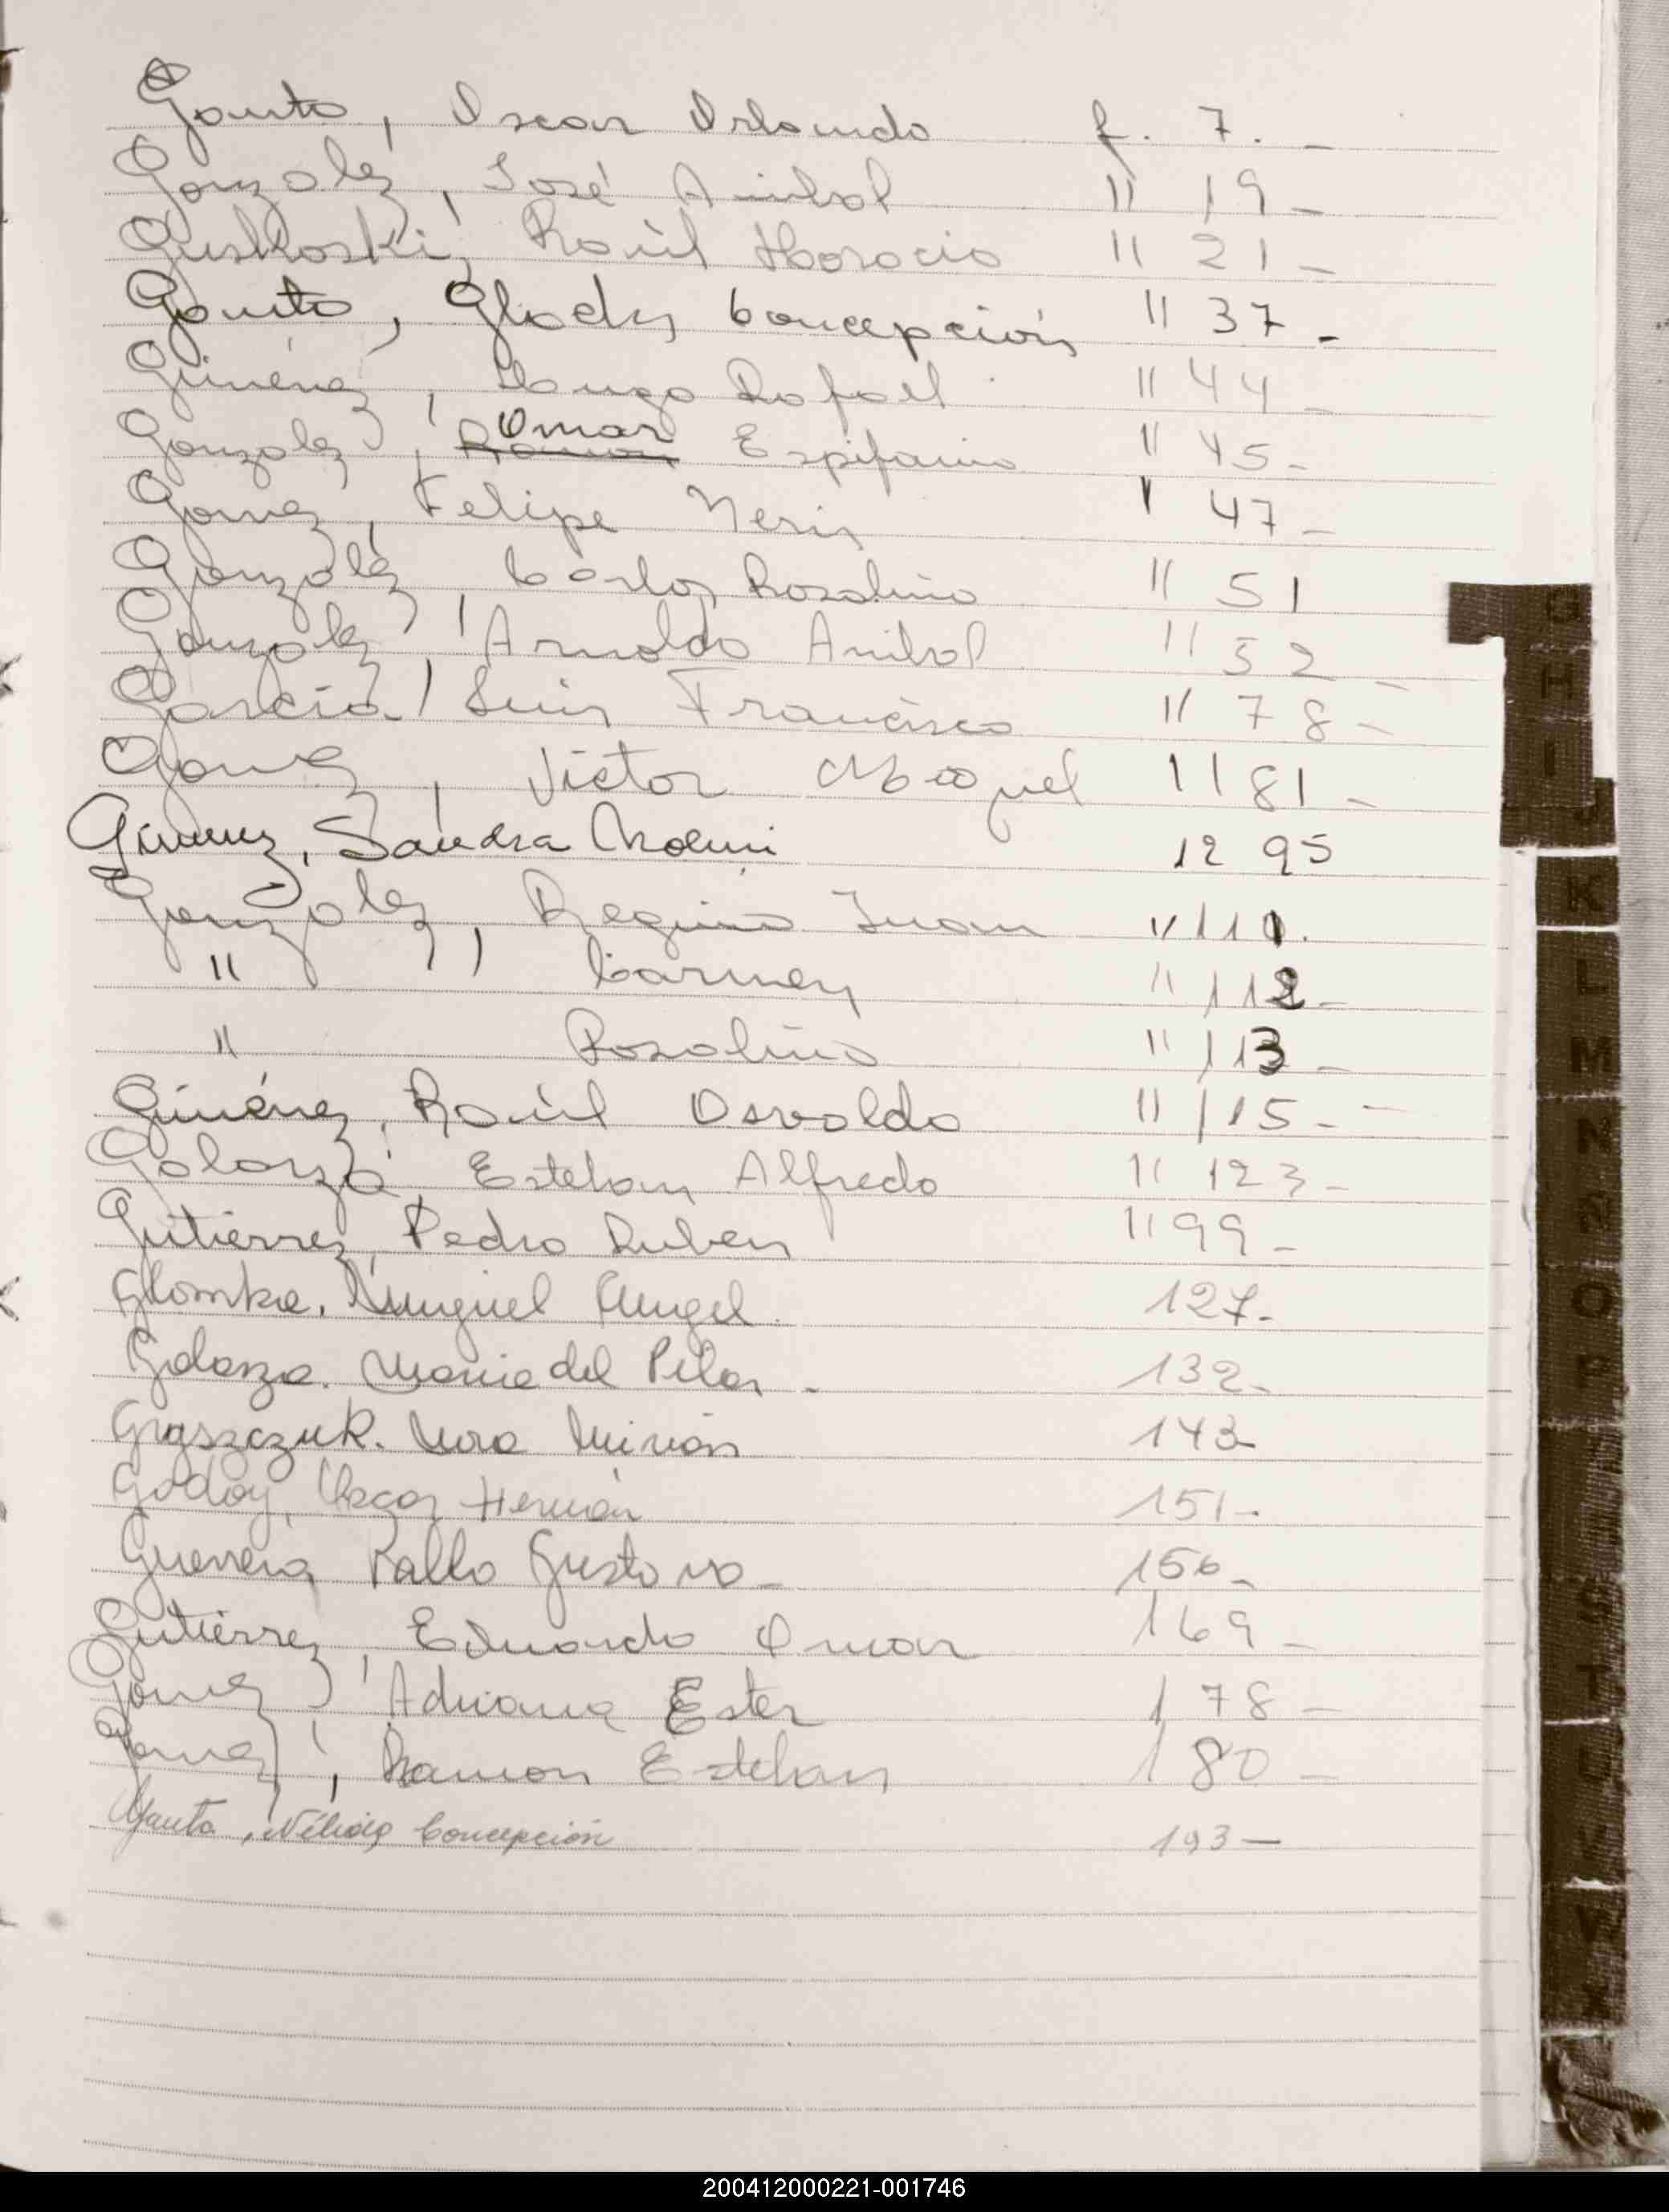 Gauto, Oscar Orlando f. 7. -
Gonzalez, José Anibal " 19 -
Guskoski, Raúl Horacio " 21 -
Gauto, Gladys Concepción " 37 -
Giménez, Hugo Rafael " 44 -
Gonzalez, Ramon Omar Espifanio " 45 -
Gomez, Felipe Neris " 47 -
Gonzalez, Carlos Rosalino " 51
Gonzalez, Arnoldo Anibal " 52 -
García, Luis Francisco " 78 -
Gomez, Victor Miguel " 81 -
Gimenez, Sandra Noemi 95
Gonzalez, Regino Juan " 110.
" Carmen " 112 -
" Rosalino " 113 -
Giménez, Raúl Osvaldo " 115 -
Galarza, Esteban Alfredo " 123 -
Gutiérrez, Pedro Ruben " 99 -
Glomke. Miguel Angel. 127 -
Galarza. Maria del Pilar - 132 -
Gryszczuk. Nora Mirian 143 -
Godoy, Oscar Hernán 151 -
Pablo Gustavo - 156 -
Gutiérrez, Eduardo Omar 169 -
Gomez, Adriana Ester 178 -
Gomez, Ramon Esteban 180 -
Gauto, Nélida Concepción 193 -
G
H
I
J
K
L
M
N
O
P
200412000221-001746